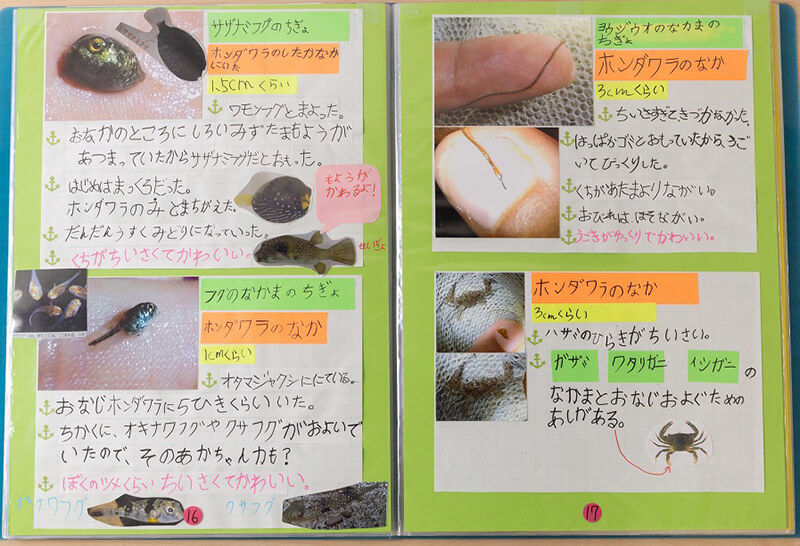 サザナミフグのちぎょ
ホンダワラのしたかなかにいた
1.5cmくらい
ワモンフグとまよった。
おなかのところにしろいみずたまもようが
あつまっていたからサザナミフグだとおもった。
はじめはまっくろだった。
ホンダワラのみとまちがえた。
だんだんうすくみどりになっていった。
くちがちいさくてかわいい。
もようが
かわるよ!
せいぎょ
フグのなかまのちぎょ
ホンダワラのなか
1cmくらい
オタマジャクシににている。
おなじホンダワラに5ひきくらいいた。
ちかくに、オキナワフグやクサフグがおよいで
いたので、そのあかちゃんかも?
ぼくのツメくらいちいさくてかわいい。
オキナワフグ
クサフグ
16
ヨウジウオのなかまの
ちぎょ
ホンダワラのなか
3cmくらい
ちいさすぎてきづかなかった。
はっぱかゴミとおもっていたから、うご
いてびっくりした。
くちがあたまよりながい。
おびれは ほそながい。
うごきがゆっくりでかわいい。
ホンダワラのなか
3cmくらい
ハサミのひらきがちいさい。
ガザミ ワタリガニ イシガニ の
なかまとおなじおよぐための
あしがある。
17